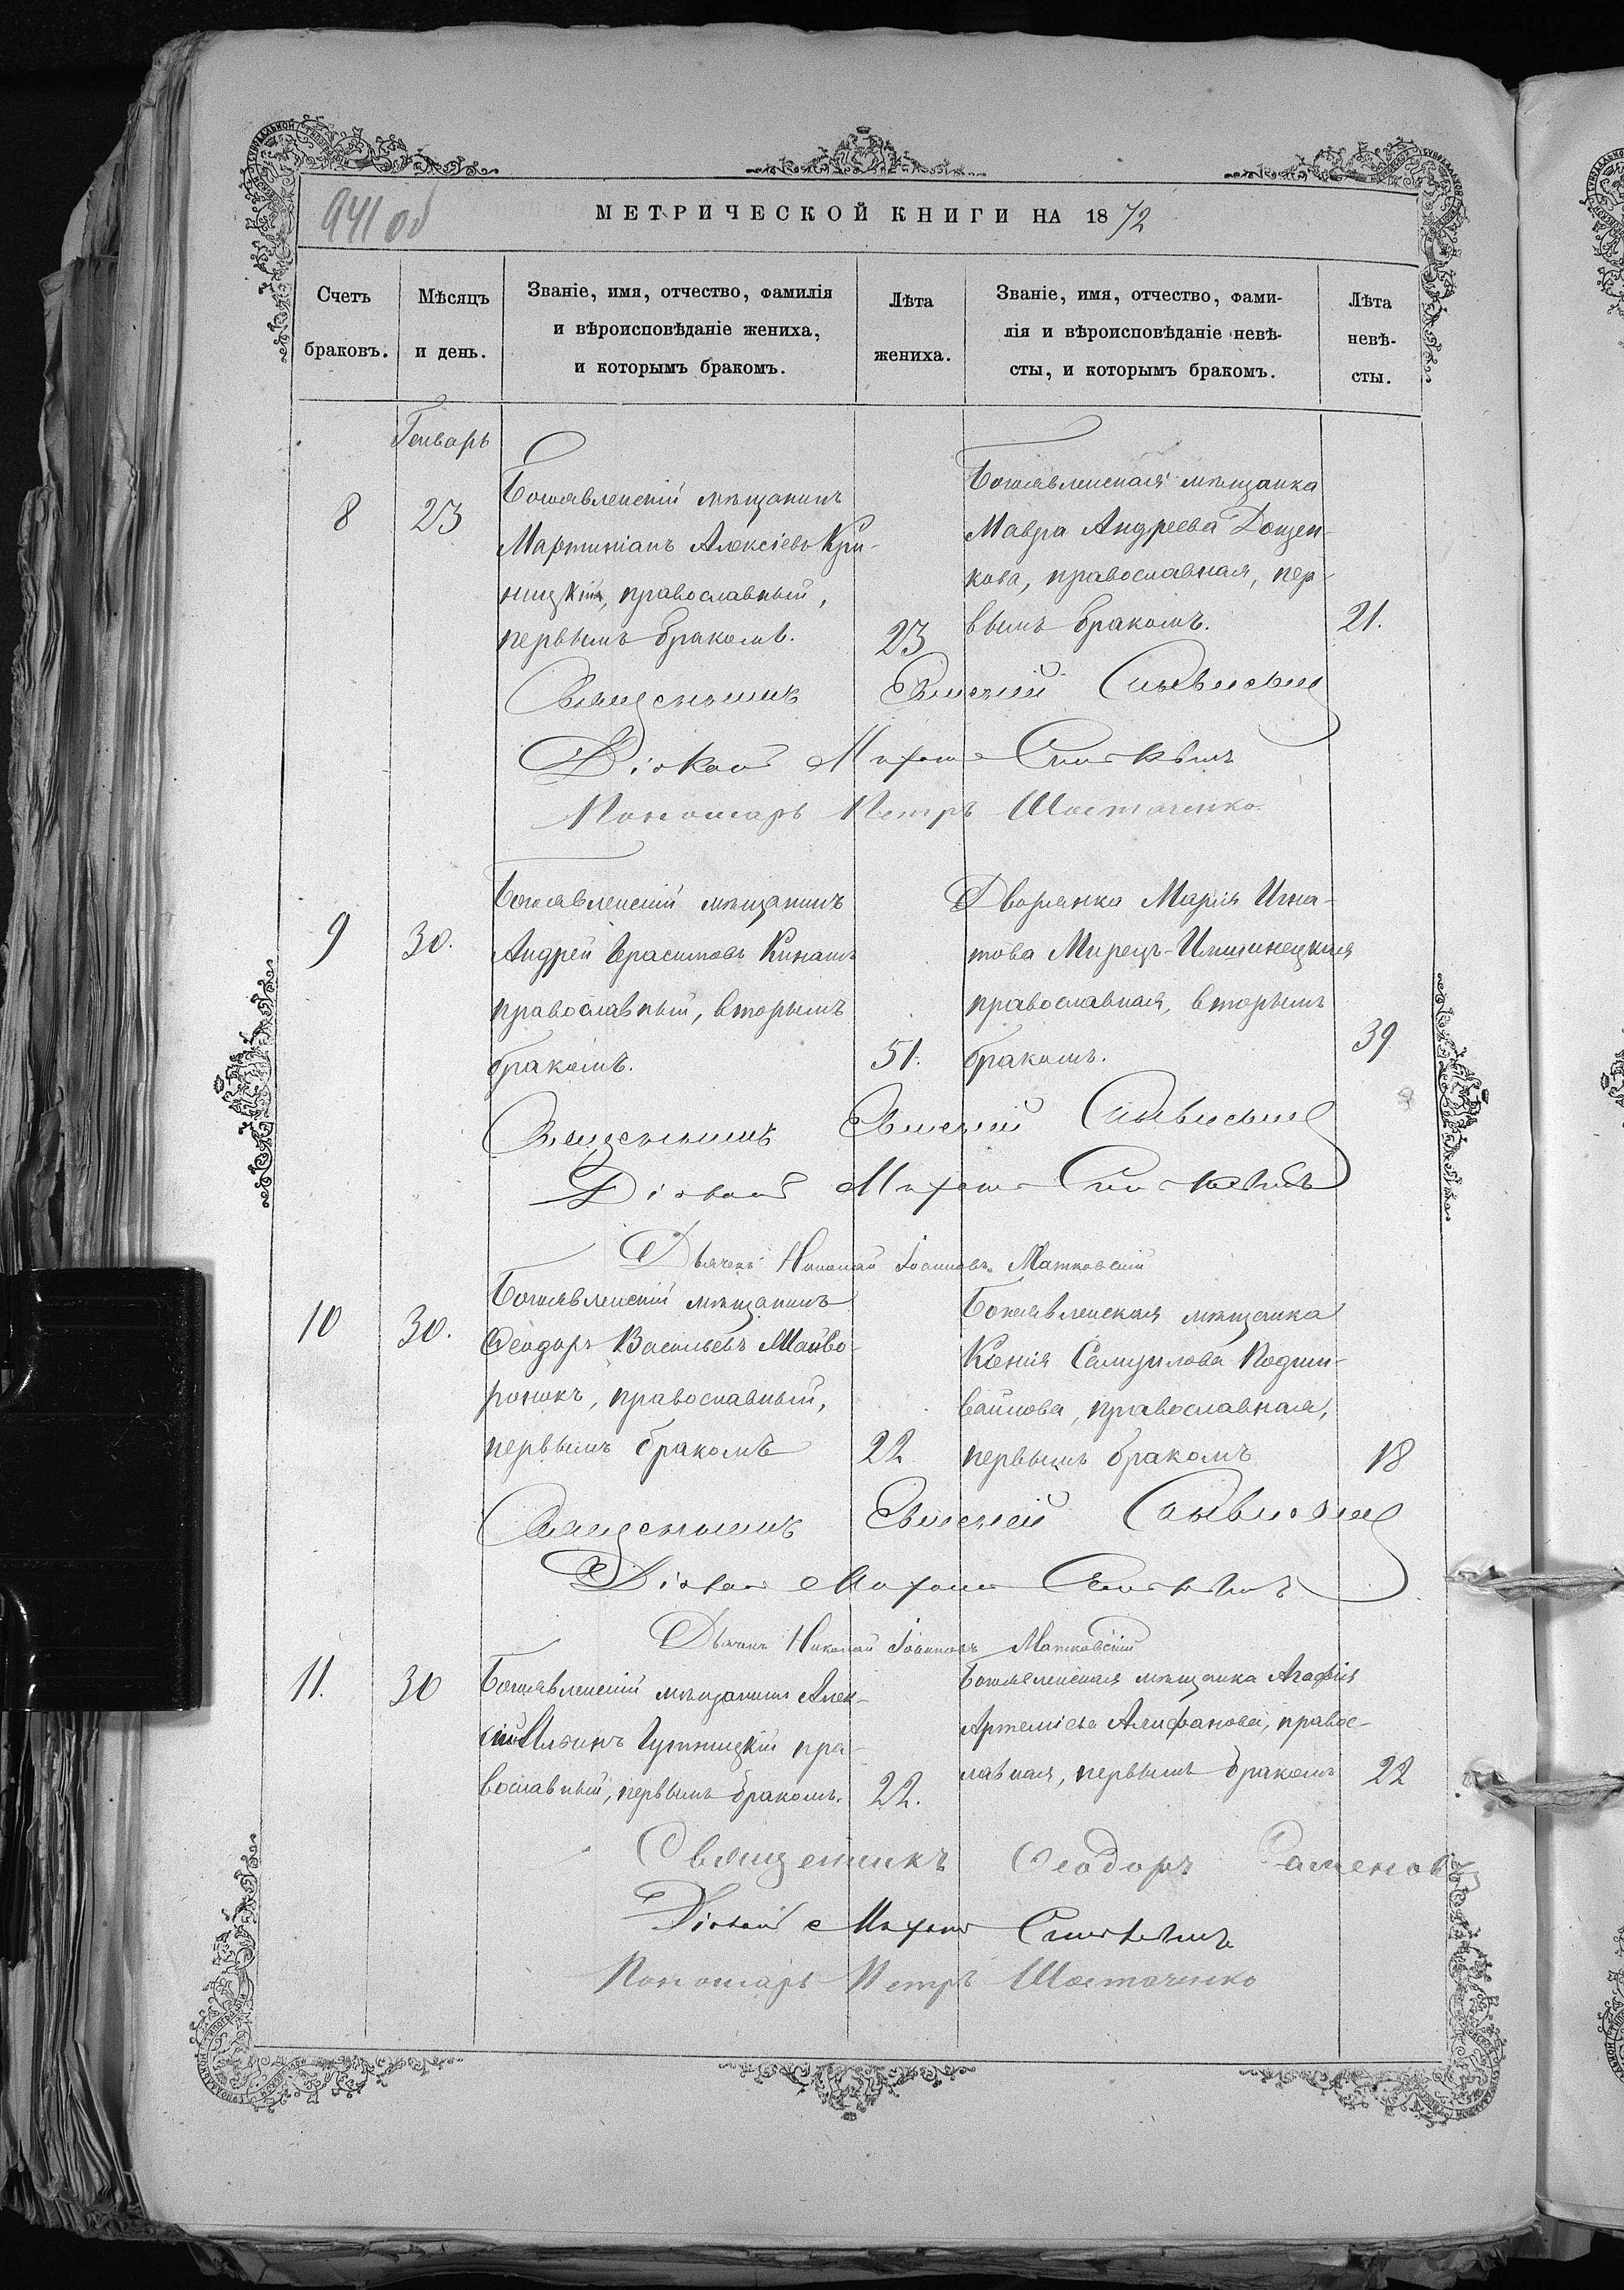 941 об
МЕТРИЧЕСКОЙ КНИГИ НА 1872
Счетъ браковъ.
Мѣсяцъ и день.
Званіе, имя, отчество, фамилія
и вѣроисповѣданіе жениха,
и которымъ бракомъ.
Лѣта жениха.
Званіе, имя, отчество, фами-
лія и вѣроисповѣданіе невѣ-
сты, и которымъ бракомъ.
Лѣта невѣ-
сты.
Генварь
8
23
Богоявленскій мѣщанинъ
Мартиніанъ Алексіевъ Кри-
ницкій, православный,
первымъ бракомъ.
23
Богоявленская мѣщанка
Мавра Андреева Доцен-
кова, православная, пер-
вымъ бракомъ.
21.
Священникъ Евгеній
Діаконъ
Пономарь Петръ Шостаченко
9
30.
Богоявленскій мѣщанинъ
Андрей Герасимовъ Кинашъ
православный, вторымъ
бракомъ.
51.
Дворянка Марія Игна-
това
православная, вторымъ
бракомъ.
39
Священникъ Евгеній
Діаконъ
Дьячекъ Николай Іоанновъ Матковскій
10
30.
Богоявленскій мѣщанинъ
Ѳеодоръ Васильевъ Майво-
ронокъ, православный,
первымъ бракомъ
22
Богоявленская мѣщанка
Ксенія Самуилова Подши-
вайлова, православная,
первымъ бракомъ
18
Священникъ Евгеній
Діаконъ
Дьячекъ Николай Іоанновъ Матковскій
11.
30
Богоявленскій мѣщанинъ Алек-
сій Ильинъ Гутницкій пра-
вославный, первымъ бракомъ.
22.
Богоявленская мѣщанка Агафія
Артеміева Алифанова, правос-
лавная, первымъ бракомъ
22
Священникъ Ѳеодоръ
Діаконъ
Пономарь Петръ Шостаченко